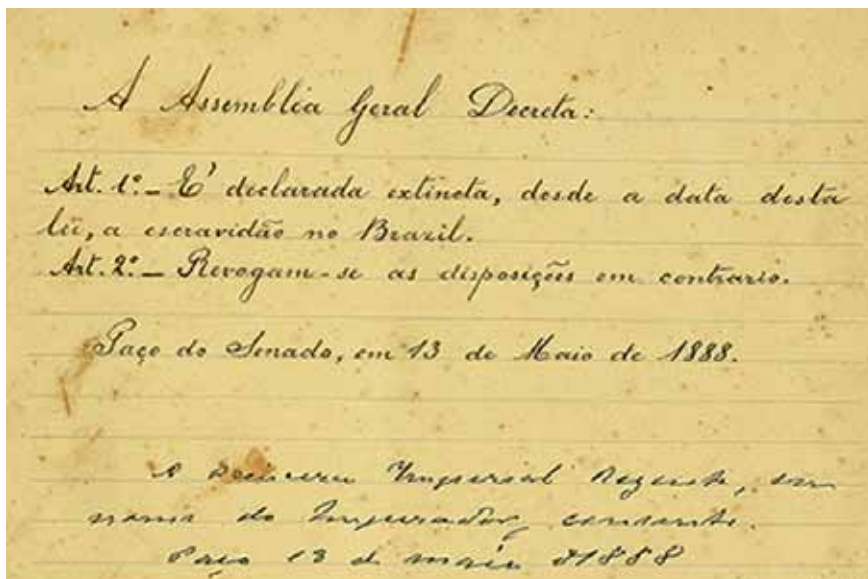 A Assemblia Geral Decreta:
Art. 1º.- É declarada extincta, desde a data desta
lei, a escravidão no Brazil.
Art. 2º.- Revogam-se as disposições em contrario.
Paço do Senado, em 13 de Maio de 1888.
A Princeza Imperial Regente, em
nome do Imperador, consente.
Paço 13 de maio d1888